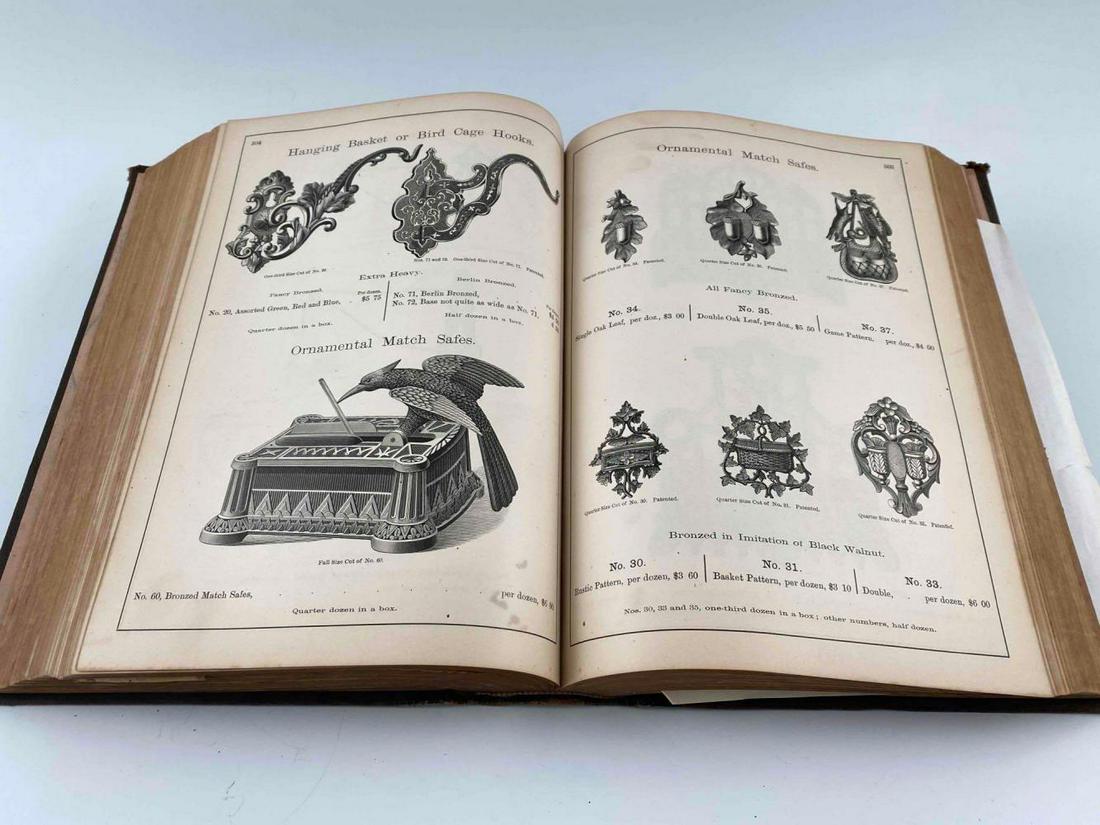 Hanging Basket or Bird Cage Hooks.
One-third Size Cut of No. 20.
Nos. 71 and 72. One-third Size Cut of No. 71. Patented.
Extra Heavy.
Fancy Bronzed.
Per dozen.
No. 20, Assorted Green, Red and Blue, . $5 75
Quarter dozen in a box.
Berlin Bronzed.
No. 71, Berlin Bronzed,
No. 72, Base not quite as wide as No. 71,
Half dozen in a box.
Ornamental Match Safes.
Full Size Cut of No. 60.
No. 60, Bronzed Match Safes, per dozen,
Quarter dozen in a box.
Ornamental Match Safes.
Quarter Size Cut of No. 34. Patented.
Quarter Size Cut of No. 35. Patented.
Quarter Size Cut of No. 37. Patented.
All Fancy Bronzed.
No. 34.
Single Oak Leaf, per doz., $3 00
No. 35.
Double Oak Leaf, per doz., $5 50
No. 37.
Game Pattern, per doz., $4 60
Quarter Size Cut of No. 30. Patented.
Quarter Size Cut of No. 31. Patented.
Quarter Size Cut of No. 33. Patented.
Bronzed in Imitation of Black Walnut.
No. 30.
Rustic Pattern, per dozen, $3 60
No. 31.
Basket Pattern, per dozen, $3 10
No. 33.
Double, . per dozen, $6 00
Nos. 30, 33 and 35, one-third dozen in a box; other numbers, half dozen.